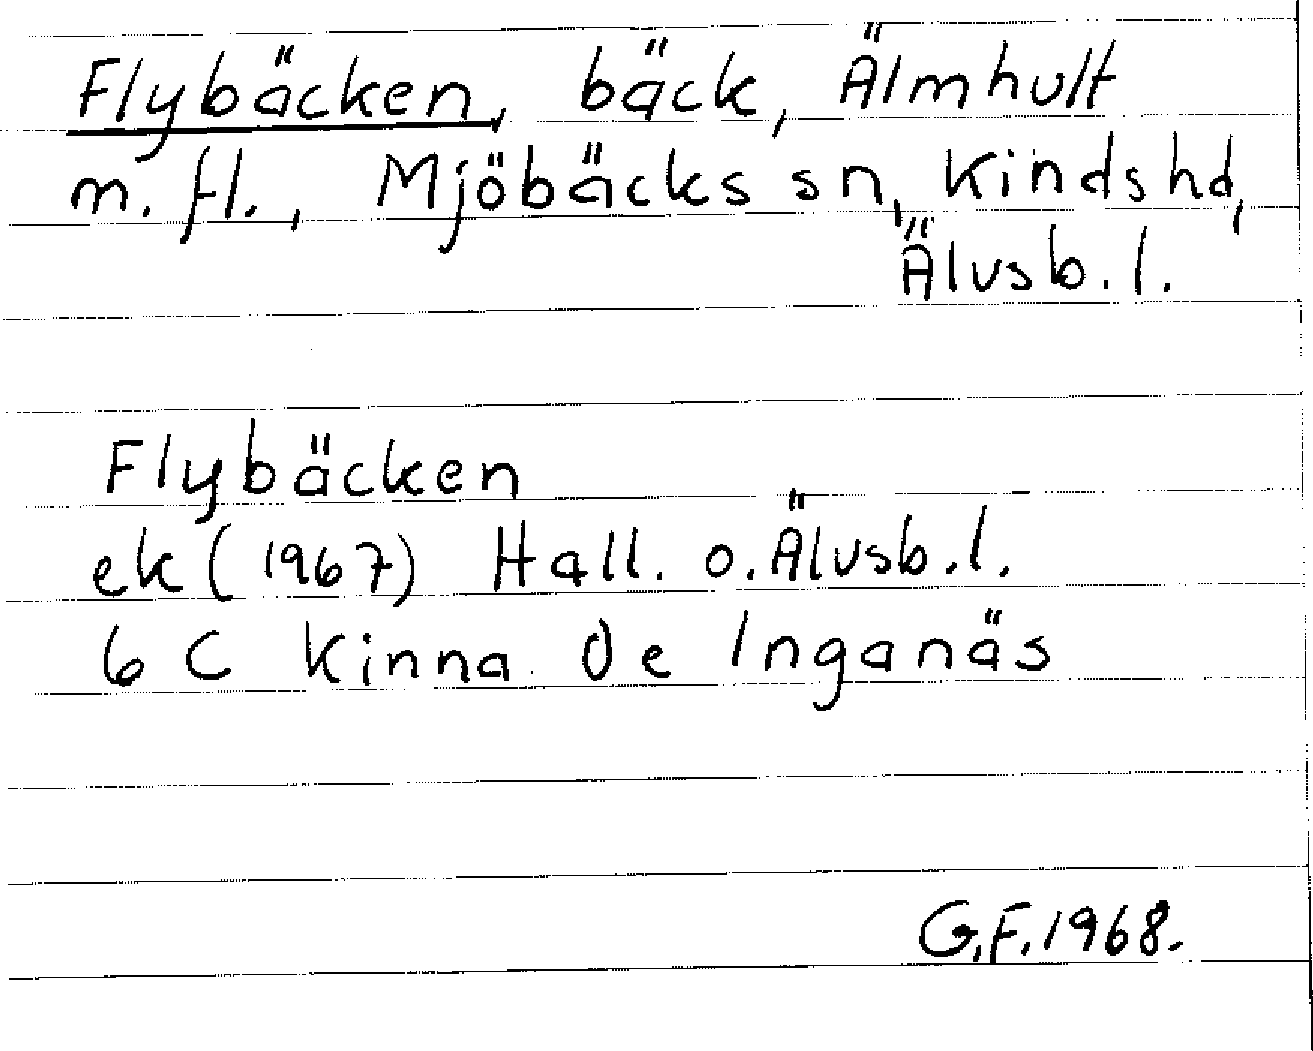 Flybäcken, bäck, Älmhult
m. fl., Mjöbäcks sn, Kinds hd,
Älvsb. l.
Flybäcken
ek (1967) Hall. o. Älvsb. l.
6 C Kinna Ö e Inganäs
G. F. 1968.